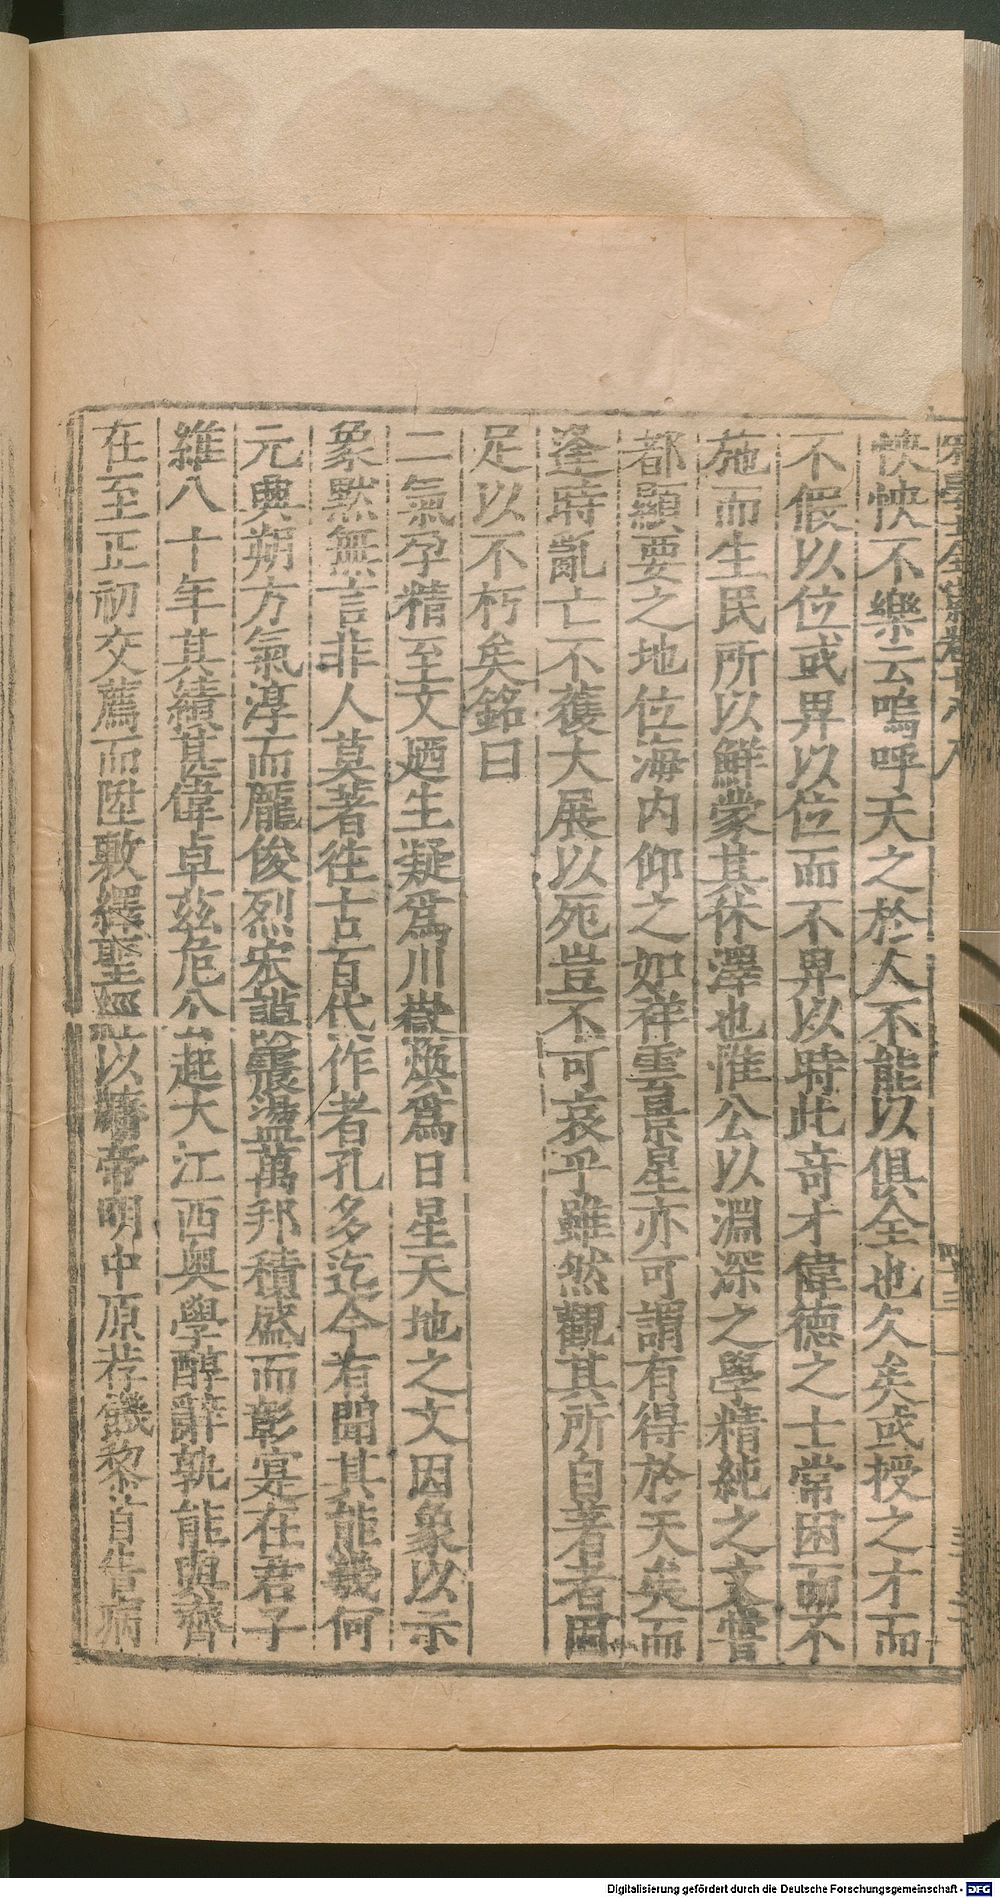 宋學士全集卷十八
怏怏不樂云嗚呼天之於人不能以俱全也久矣或授之才而
不假以位或畀以位而不畀以時此奇才偉德之士常困而不
施而生民所以鮮蒙其休澤也惟公以淵深之學精純之文嘗
都顯要之地位海内仰之如祥雲景星亦可謂有得於天矣而
逢時亂亡不獲大展以死豈不可哀乎雖然觀其所自著者固
足以不朽矣銘曰
二氣孕精至文廼生凝爲川嶽煥爲日星天地之文因象以示
象黙無言非人莫著徃古百代作者孔多迄今有聞其能幾何
元興朔方氣淳而龐俊烈宏謨震盪萬邦積盛而彰寔在君子
維八十年其績甚偉卓兹危公起大江西奥學醇辭孰能與齊
在至正初交薦而陞敷繹聖經以贊帝明中原荐饑黎首告病
Digitalisierung gefördert durch die Deutsche Forschungsgemeinschaft - DFG